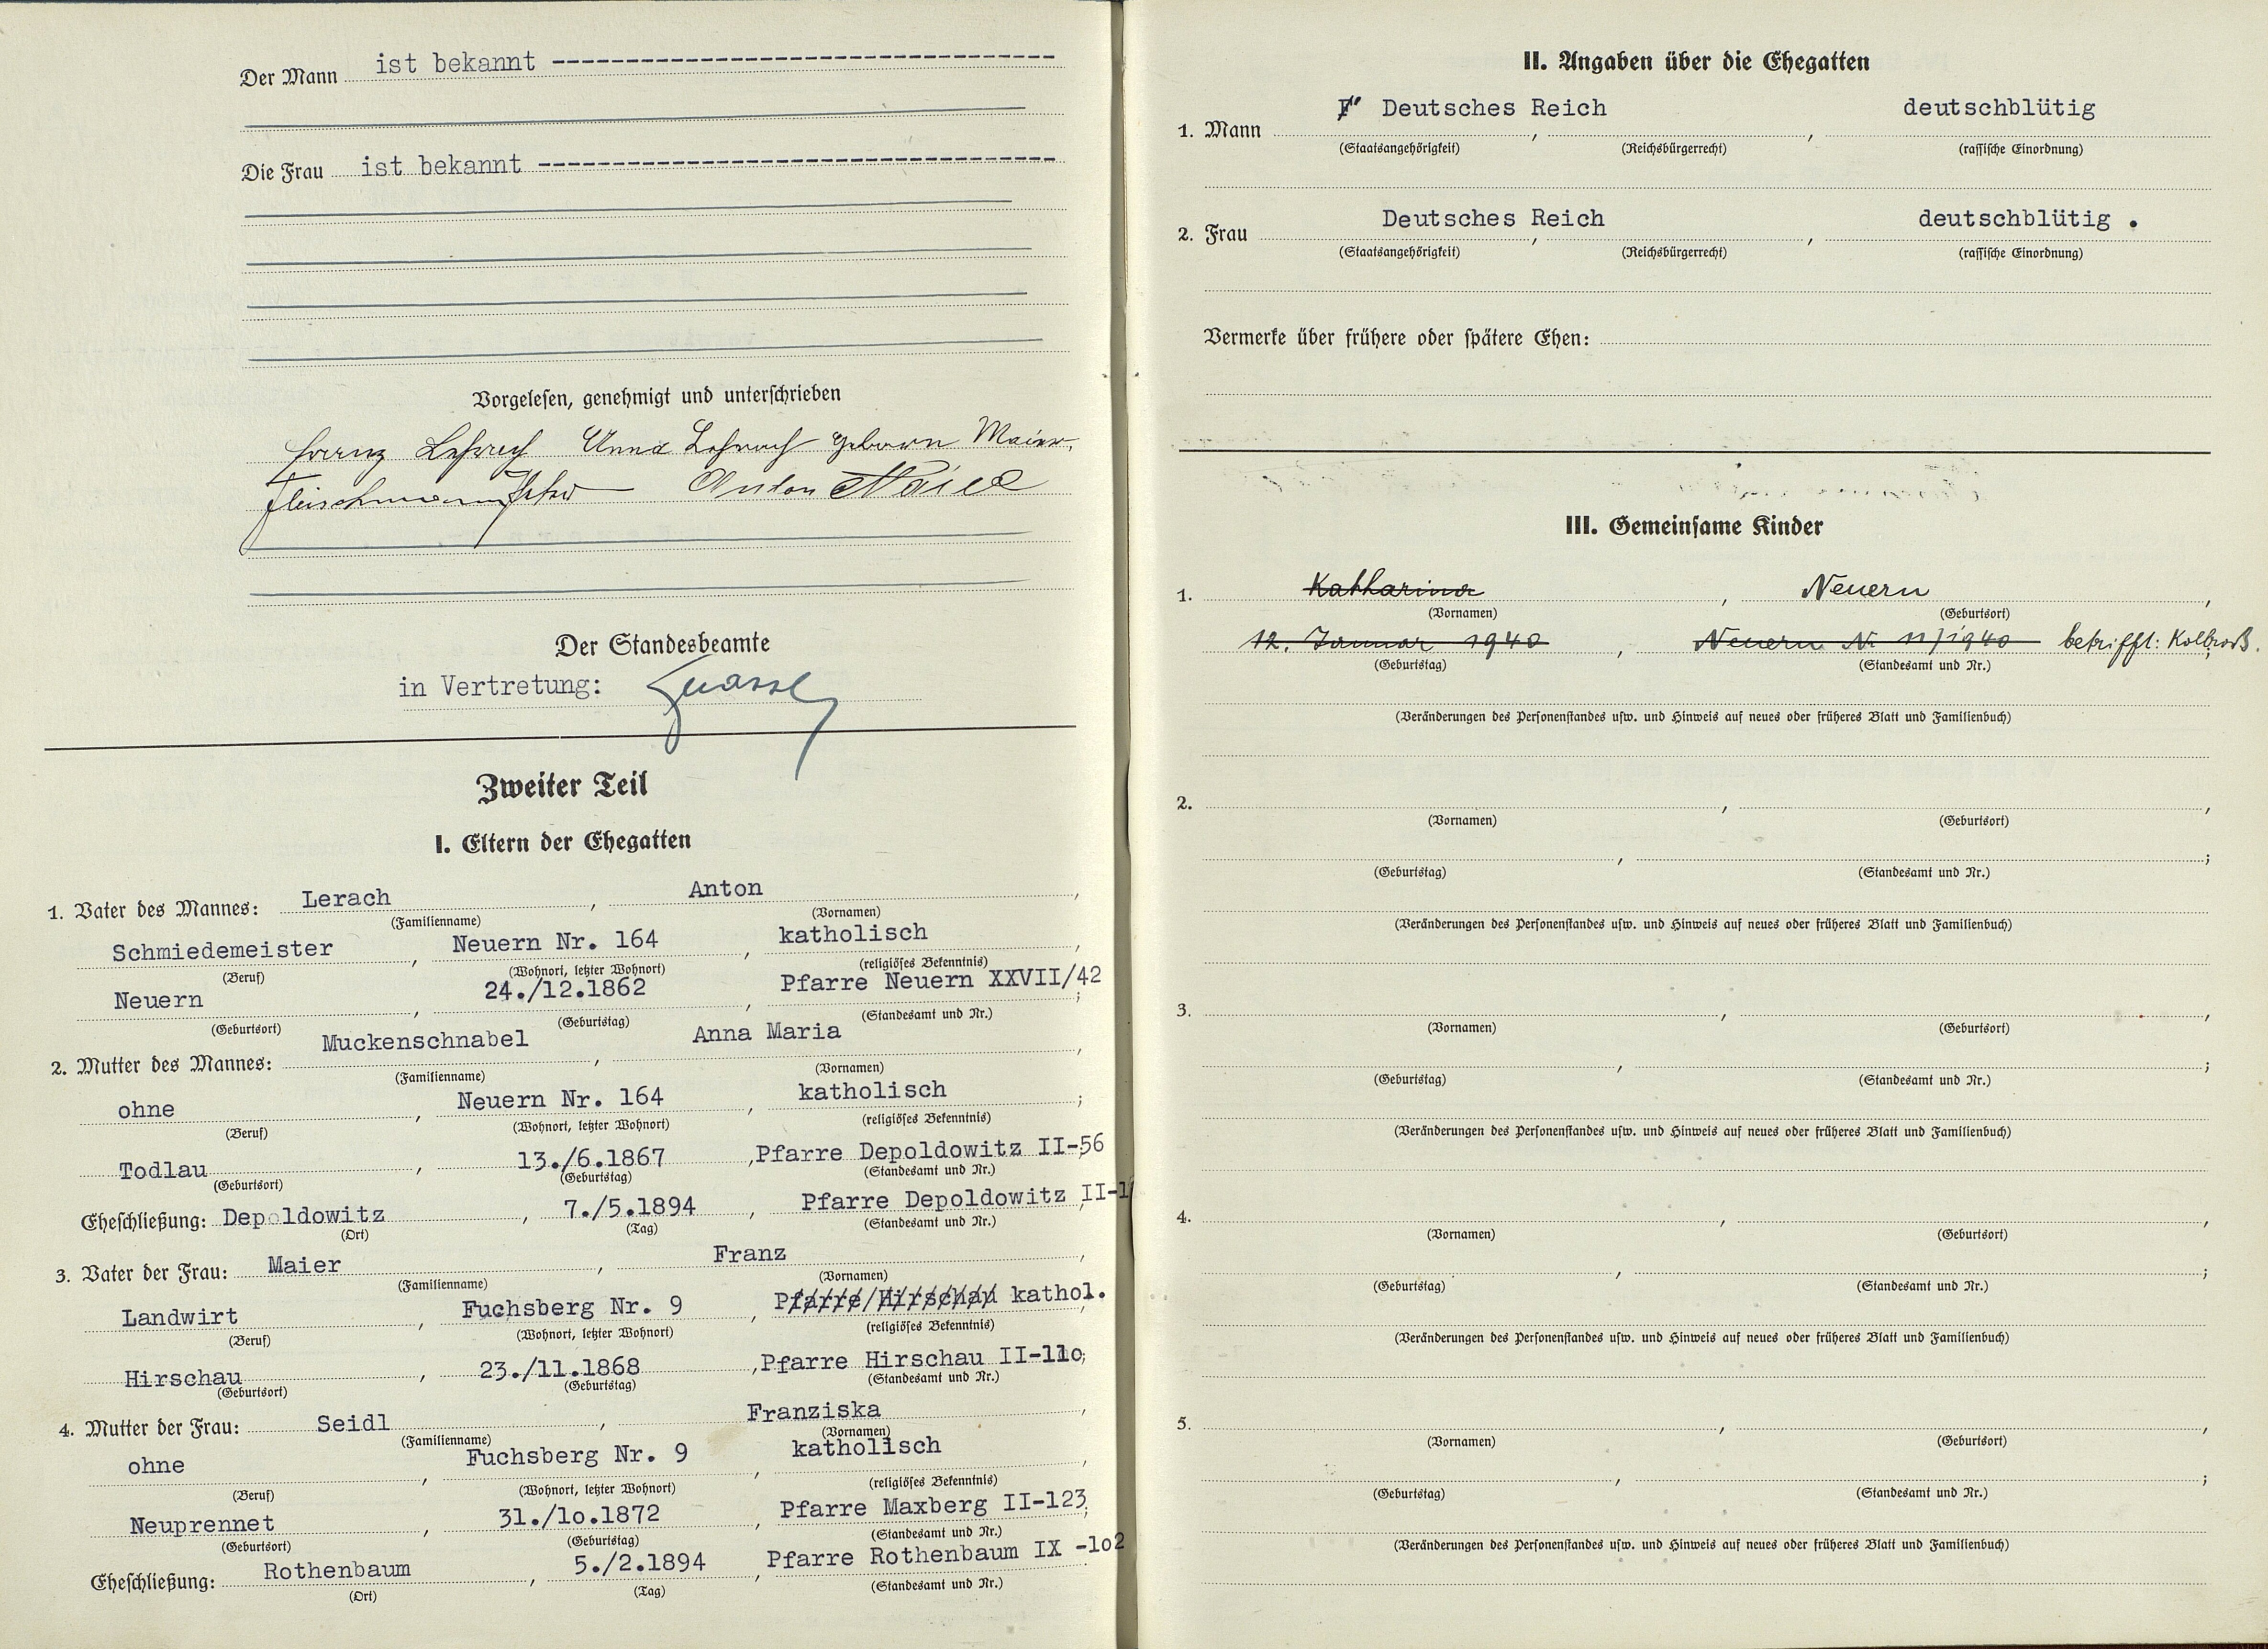 Der Mann ist bekannt ----------------------------------
Die Frau ist bekannt -----------------------------------
Vorgelesen, genehmigt und unterschrieben
Franz Anna geborn Maier.
Fleischmann Anton Maier
Der Standesbeamte
in Vertretung:
Zweiter Teil
I. Eltern der Ehegatten
1. Vater des Mannes: Lerach, Anton,
(Familienname) (Vornamen)
Schmiedemeister, Neuern Nr. 164, katholisch,
(Beruf) (Wohnort, letzter Wohnort) (religiöses Bekenntnis)
Neuern, 24./12.1862, Pfarre Neuern XXVII/42;
(Geburtsort) (Geburtstag) (Standesamt und Nr.)
2. Mutter des Mannes: Muckenschnabel, Anna Maria,
(Familienname) (Vornamen)
ohne, Neuern Nr. 164, katholisch;
(Beruf) (Wohnort, letzter Wohnort) (religiöses Bekenntnis)
Todlau, 13./6.1867, Pfarre Depoldowitz II-56
(Geburtsort) (Geburtstag) (Standesamt und Nr.)
Eheschließung: Depoldowitz, 7./5.1894, Pfarre Depoldowitz, II-1
(Ort) (Tag) (Standesamt und Nr.)
3. Vater der Frau: Maier, Franz,
(Familienname) (Vornamen)
Landwirt, Fuchsberg Nr. 9, Pfarre/Hirschau kathol.,
(Beruf) (Wohnort, letzter Wohnort) (religiöses Bekenntnis)
Hirschau, 23./11.1868, Pfarre Hirschau II-11o;
(Geburtsort) (Geburtstag) (Standesamt und Nr.)
4. Mutter der Frau: Seidl, Franziska,
(Familienname) (Vornamen)
ohne, Fuchsberg Nr. 9, katholisch,
(Beruf) (Wohnort, letzter Wohnort) (religiöses Bekenntnis)
Neuprennet, 31./1o.1872, Pfarre Maxberg II-123;
(Geburtsort) (Geburtstag) (Standesamt und Nr.)
Eheschließung: Rothenbaum, 5./2.1894, Pfarre Rothenbaum IX -1o2
(Ort) (Tag) (Standesamt und Nr.)
II. Angaben über die Ehegatten
1. Mann Deutsches Reich, , deutschblütig
(Staatsangehörigkeit) (Reichsbürgerrecht) (rassische Einordnung)
2. Frau Deutsches Reich, , deutschblütig .
(Staatsangehörigkeit) (Reichsbürgerrecht) (rassische Einordnung)
Vermerke über frühere oder spätere Ehen:
III. Gemeinsame Kinder
1. Katharina, Neuern,
(Vornamen) (Geburtsort)
12. Januar 1940, Neuern Nr. 11/1940 betrifft: Kolbroß.
(Geburtstag) (Standesamt und Nr.)
(Veränderungen des Personenstandes usw. und Hinweis auf neues oder früheres Blatt und Familienbuch)
2. , ,
(Vornamen) (Geburtsort)
, ;
(Geburtstag) (Standesamt und Nr.)
(Veränderungen des Personenstandes usw. und Hinweis auf neues oder früheres Blatt und Familienbuch)
3. , ,
(Vornamen) (Geburtsort)
, ;
(Geburtstag) (Standesamt und Nr.)
(Veränderungen des Personenstandes usw. und Hinweis auf neues oder früheres Blatt und Familienbuch)
4. , ,
(Vornamen) (Geburtsort)
, ;
(Geburtstag) (Standesamt und Nr.)
(Veränderungen des Personenstandes usw. und Hinweis auf neues oder früheres Blatt und Familienbuch)
5. , ,
(Vornamen) (Geburtsort)
, ;
(Geburtstag) (Standesamt und Nr.)
(Veränderungen des Personenstandes usw. und Hinweis auf neues oder früheres Blatt und Familienbuch)